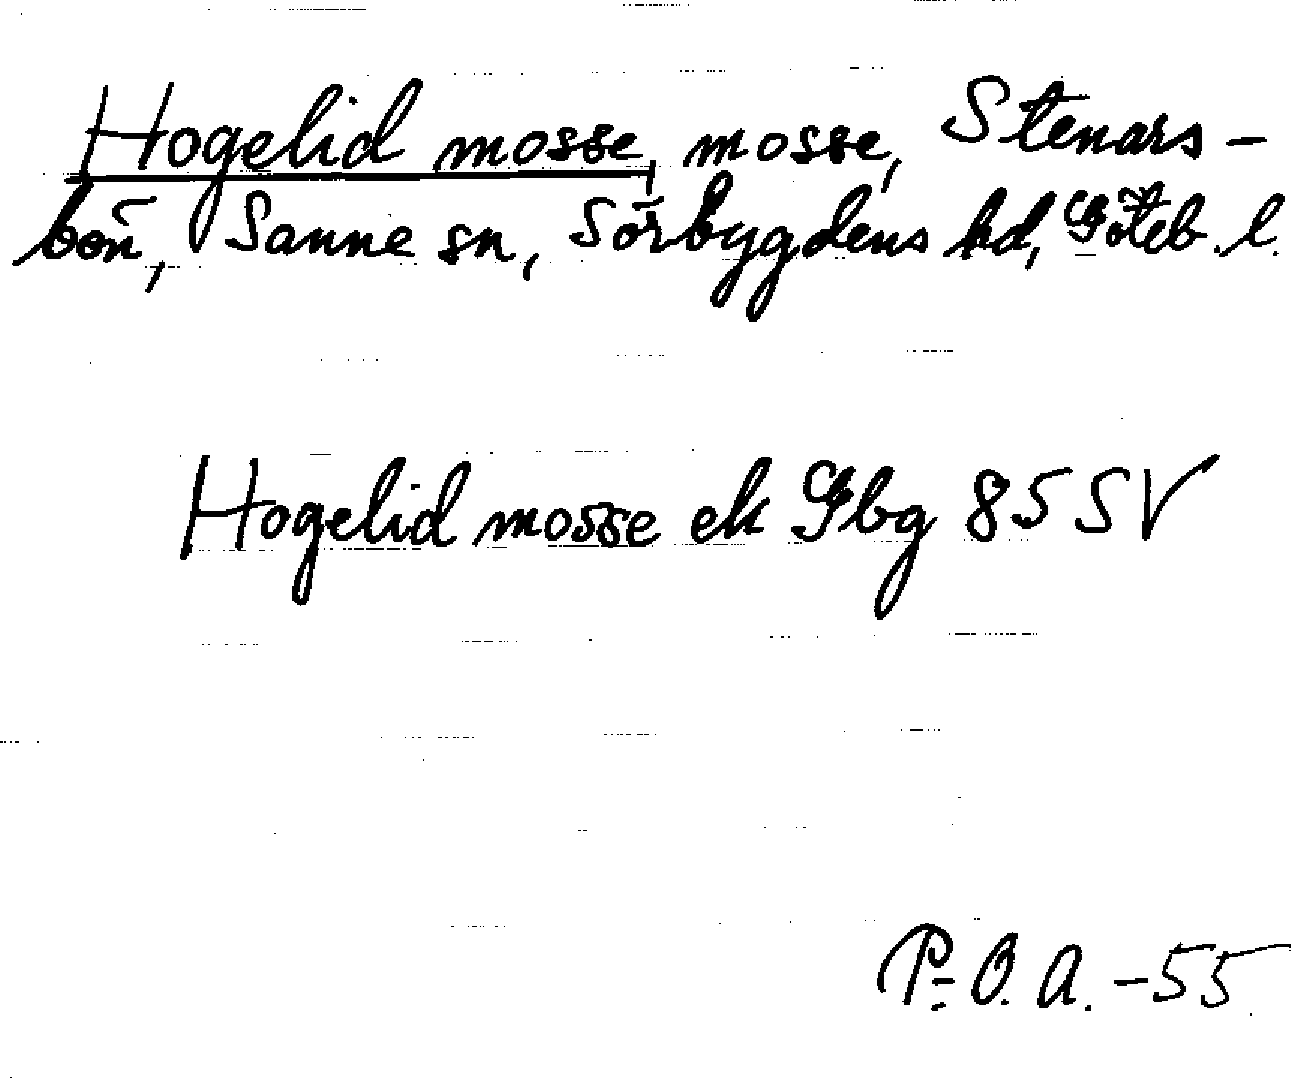 Hogelid mosse, mosse, Stenars-
bön, Sanne sn, Sörbygdens hd, Göteb. l.
Hogelid mosse ek Gbg 85 SV
P-O. A. -55